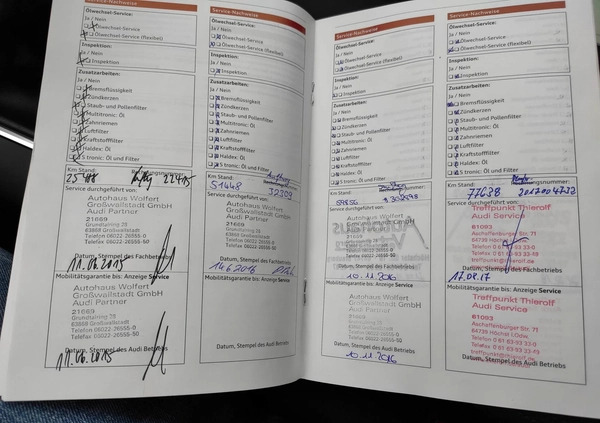 Service-Nachweise
Ölwechsel-Service:
Ja / Nein
Ölwechsel-Service
Ölwechsel-Service (flexibel)
Inspektion:
Ja / Nein
Inspektion
Zusatzarbeiten:
Ja / Nein
Bremsflüssigkeit
Zündkerzen
Staub- und Pollenfilter
Multitronic: Öl
Zahnriemen
Luftfilter
Kraftstofffilter
Haldex: Öl
S tronic: Öl und Filter
Km Stand:
22415
Service durchgeführt von:
Autohaus Wolfert
Großwallstadt GmbH
Audi Partner
21669
63868 Großwallstadt
Telefon 06022-26555-0
Telefax 06022-26555-50
Datum, Stempel des Fachbetriebs
11.06.2015
Mobilitätsgarantie bis: Anzeige Service
Autohaus Wolfert
Großwallstadt GmbH
Audi Partner
21669
63868 Großwallstadt
Telefon 06022-26555-0
Telefax 06022-26555-50
Datum, Stempel des Audi Betriebs
11.06.2015
Service-Nachweise
Ölwechsel-Service:
Ja / Nein
Ölwechsel-Service
Ölwechsel-Service (flexibel)
Inspektion:
Ja / Nein
Inspektion
Zusatzarbeiten:
Ja / Nein
Bremsflüssigkeit
Zündkerzen
Staub- und Pollenfilter
Multitronic: Öl
Zahnriemen
Luftfilter
Kraftstofffilter
Haldex: Öl
S tronic: Öl und Filter
Km Stand:
51448
32209
Service durchgeführt von:
Autohaus Wolfert
Großwallstadt GmbH
Audi Partner
21669
63868 Großwallstadt
Telefon 06022-26555-0
Telefax 06022-26555-50
Datum, Stempel des Fachbetriebs
14.6.2016
Mobilitätsgarantie bis: Anzeige Service
Datum, Stempel des Audi Betriebs
Service-Nachweise
Ölwechsel-Service:
Ja / Nein
Ölwechsel-Service
Ölwechsel-Service (flexibel)
Inspektion:
Ja / Nein
Inspektion
Zusatzarbeiten:
Ja / Nein
Bremsflüssigkeit
Zündkerzen
Staub- und Pollenfilter
Multitronic: Öl
Zahnriemen
Luftfilter
Kraftstofffilter
Haldex: Öl
S tronic: Öl und Filter
Km Stand:
59856
Service durchgeführt von:
Autohaus Wolfert
Großwallstadt GmbH
Audi Partner
21669
63868 Großwallstadt
Telefon 06022-26555-0
Telefax 06022-26555-50
Datum, Stempel des Fachbetriebs
10.11.2016
Mobilitätsgarantie bis: Anzeige Service
Autohaus Wolfert
Großwallstadt GmbH
Audi Partner
21669
63868 Großwallstadt
Telefon 06022-26555-0
Telefax 06022-26555-50
Datum, Stempel des Audi Betriebs
10.11.2016
Service-Nachweise
Ölwechsel-Service:
Ja / Nein
Ölwechsel-Service
Ölwechsel-Service (flexibel)
Inspektion:
Ja / Nein
Inspektion
Zusatzarbeiten:
Ja / Nein
Bremsflüssigkeit
Zündkerzen
Staub- und Pollenfilter
Multitronic: Öl
Zahnriemen
Luftfilter
Kraftstofffilter
Haldex: Öl
S tronic: Öl und Filter
Km Stand:
77628
2017004732
Service durchgeführt von:
Treffpunkt Thierolf
Audi Service
61093
Aschaffenburger Str. 71
64739 Höchst i.Odw.
Telefon 0 61 63-93 33-0
Datum, Stempel des Fachbetriebs
17.08.17
Mobilitätsgarantie bis: Anzeige Service
Treffpunkt Thierolf
Audi Service
61093
Aschaffenburger Str. 71
64739 Höchst i.Odw.
Telefon 0 61 63-93 33-0
Datum, Stempel des Audi Betriebs